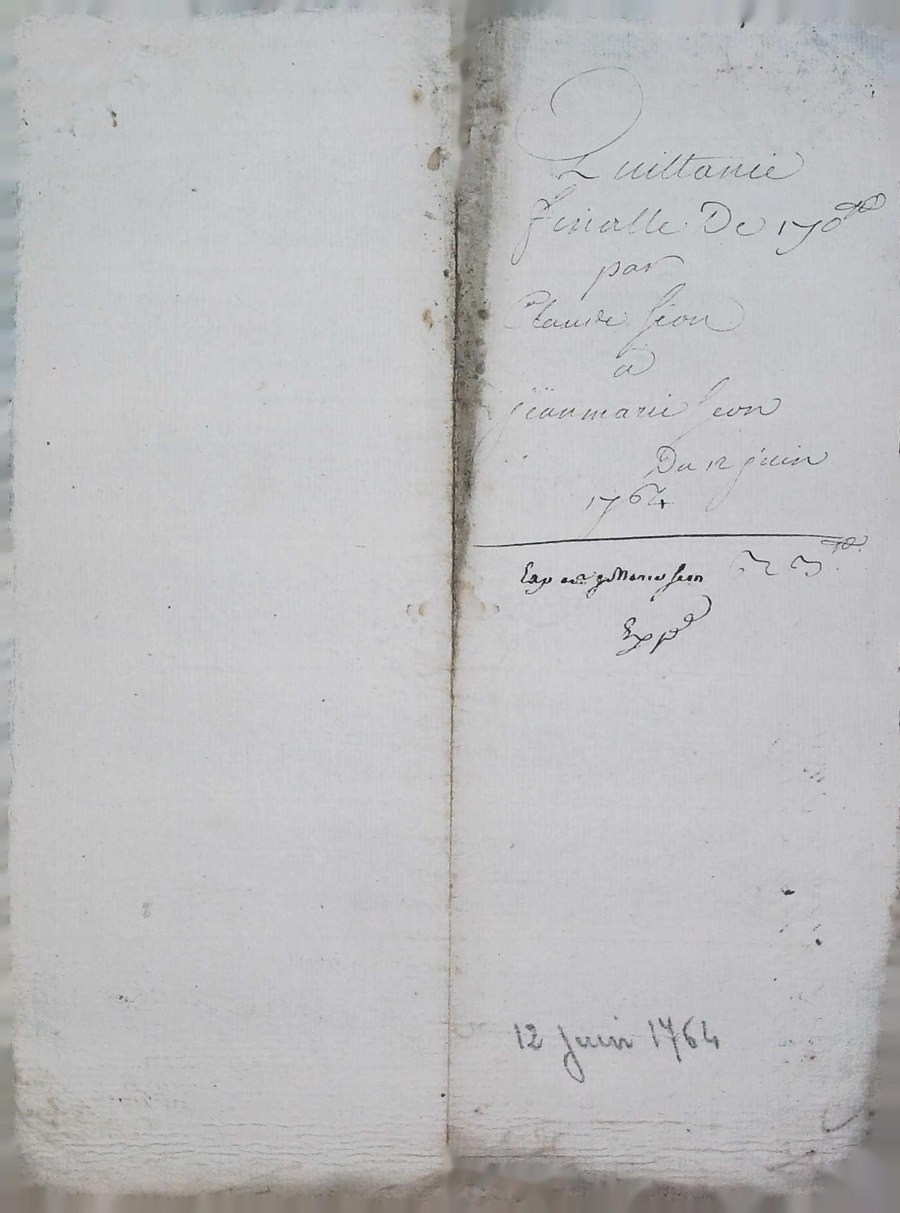 Quittance
finalle De 170ᵗᵗ
par
Claude Géon
à
jëanmarie Geon
Du 12 juin
1764
Exp a jMarie Geon
Expᵉ
12 Juin 1764